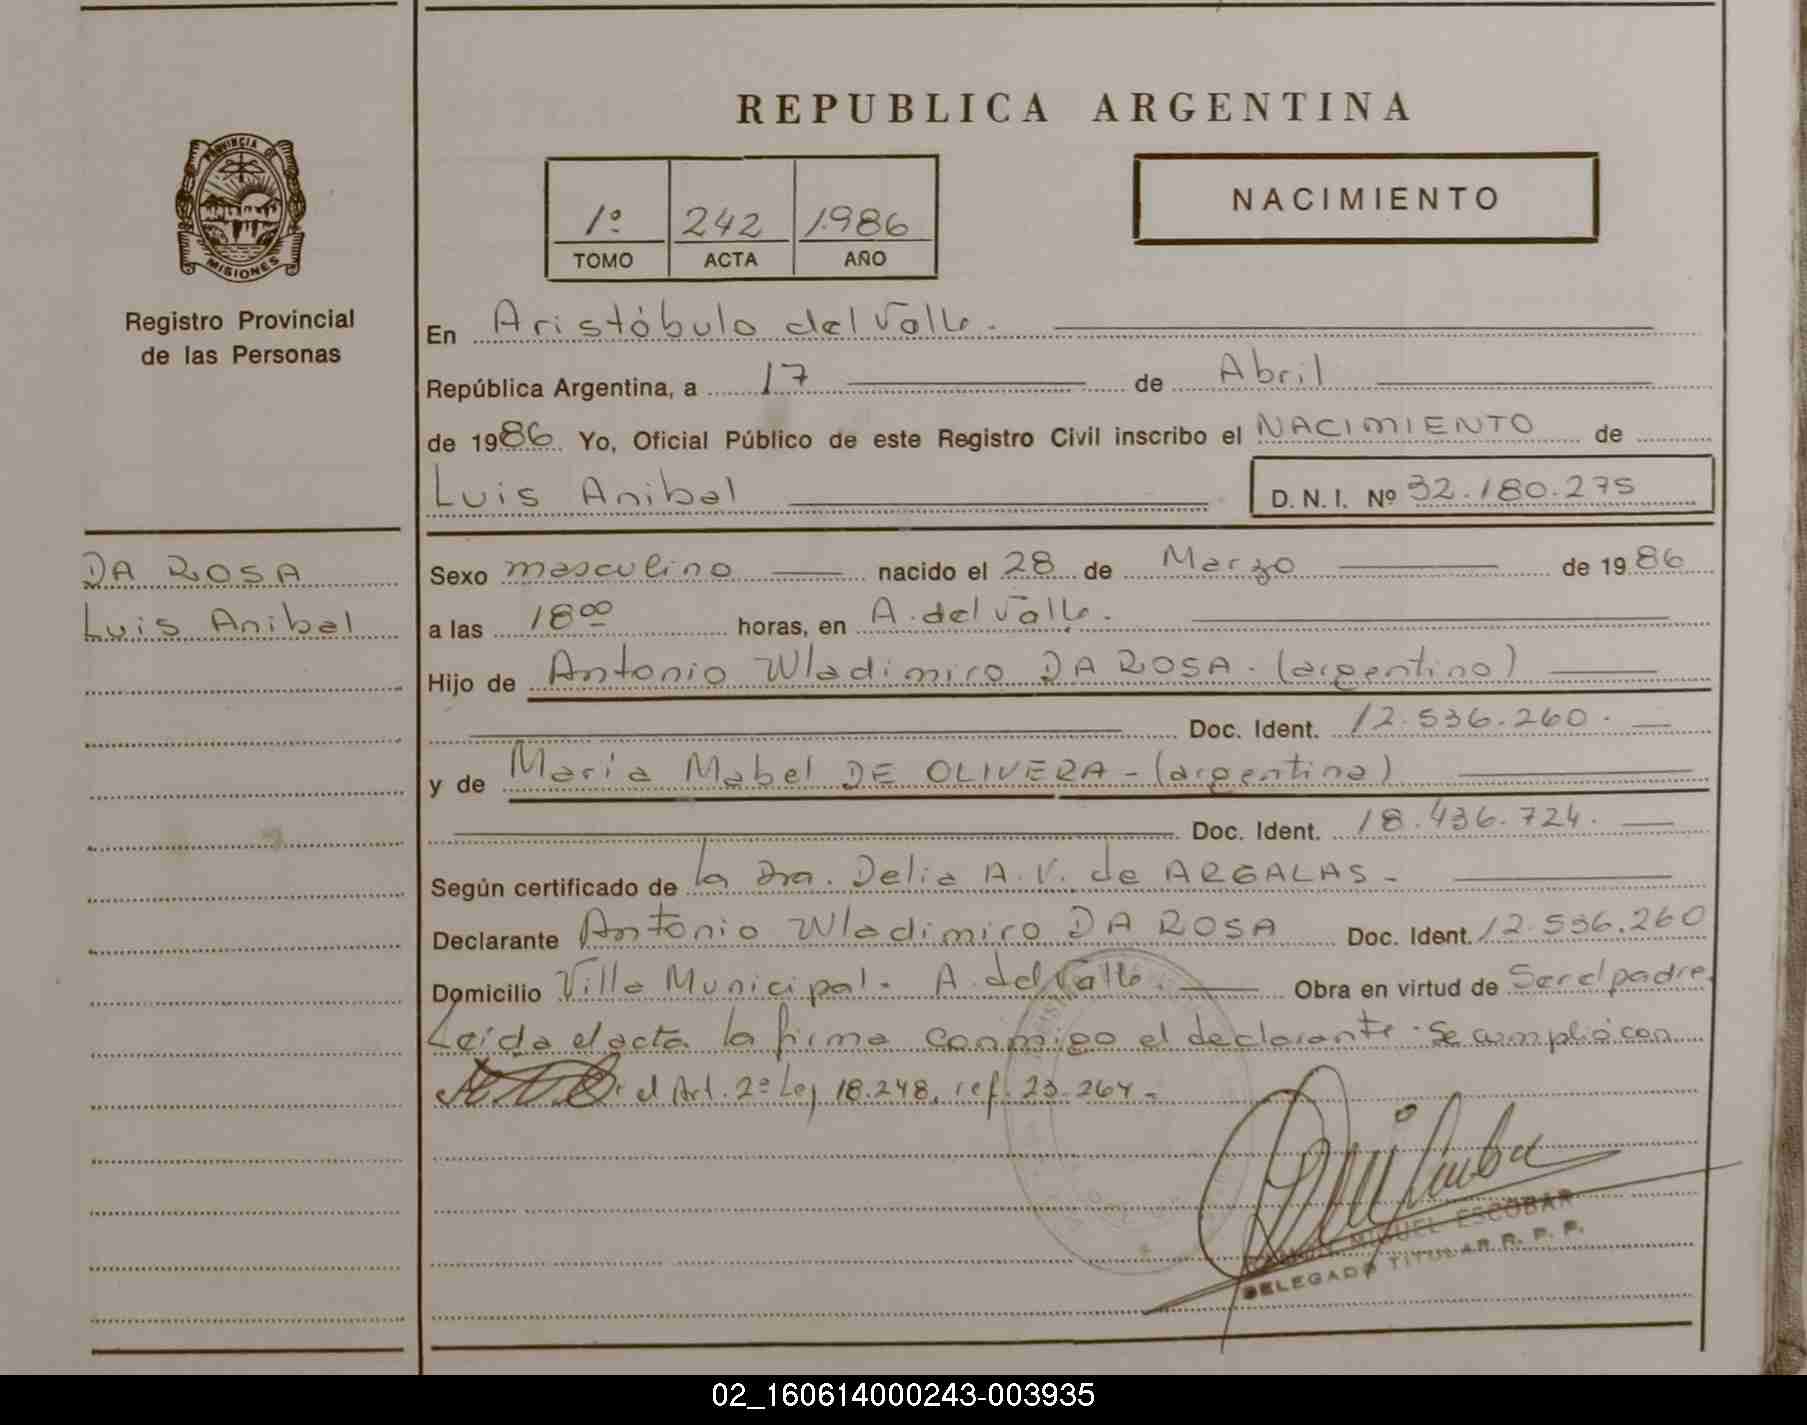 REPUBLICA ARGENTINA
PROVINCIA DE
MISIONES
Registro Provincial
de las Personas
1º 242 1986
TOMO ACTA AÑO
NACIMIENTO
En Aristóbulo del Valle.
República Argentina, a 17 de Abril
de 1986. Yo, Oficial Público de este Registro Civil inscribo el NACIMIENTO de
Luis Anibal D.N.I. Nº 32.180.275
DA ROSA
Luis Anibal
Sexo masculino nacido el 28 de Marzo de 1986
a las 18 00 horas, en A. del Valle.
Hijo de Antonio Wladimiro DA ROSA - (argentino)
Doc. Ident. 12.536.260.
y de María Mabel DE OLIVERA - (argentina)
Doc. Ident. 18.436.724.
Según certificado de la Dra. Delia A. V. de ARGALAS -
Declarante Antonio Wladimiro DA ROSA Doc. Ident. 12.536.260
Domicilio Villa Municipal - A. del Valle. Obra en virtud de Ser el padre.
Leída el acta la firma conmigo el declarante - Se cumplió con
el Art. 2º Ley 18.248, ref. 23.264 -
MIGUEL ESCOBAR
DELEGADO TITULAR R. P. P.
02_160614000243-003935